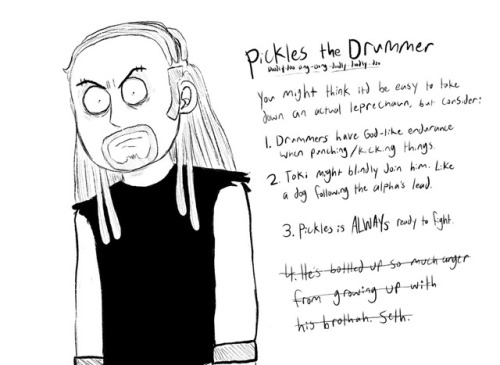 Pickles the Drummer
Doodily-doo ding-dong doodily doodily doo
You might think it'd be easy to take
down an actual leprechaun, but consider:
1. Drummers have God-like endurance
when punching/kicking things.
2. Toki might blindly join him. Like
a dog following the alpha's lead.
3. Pickles is ALWAYS ready to fight.
4. He's bottled up so much anger
from growing up with
his brothah. Seth.